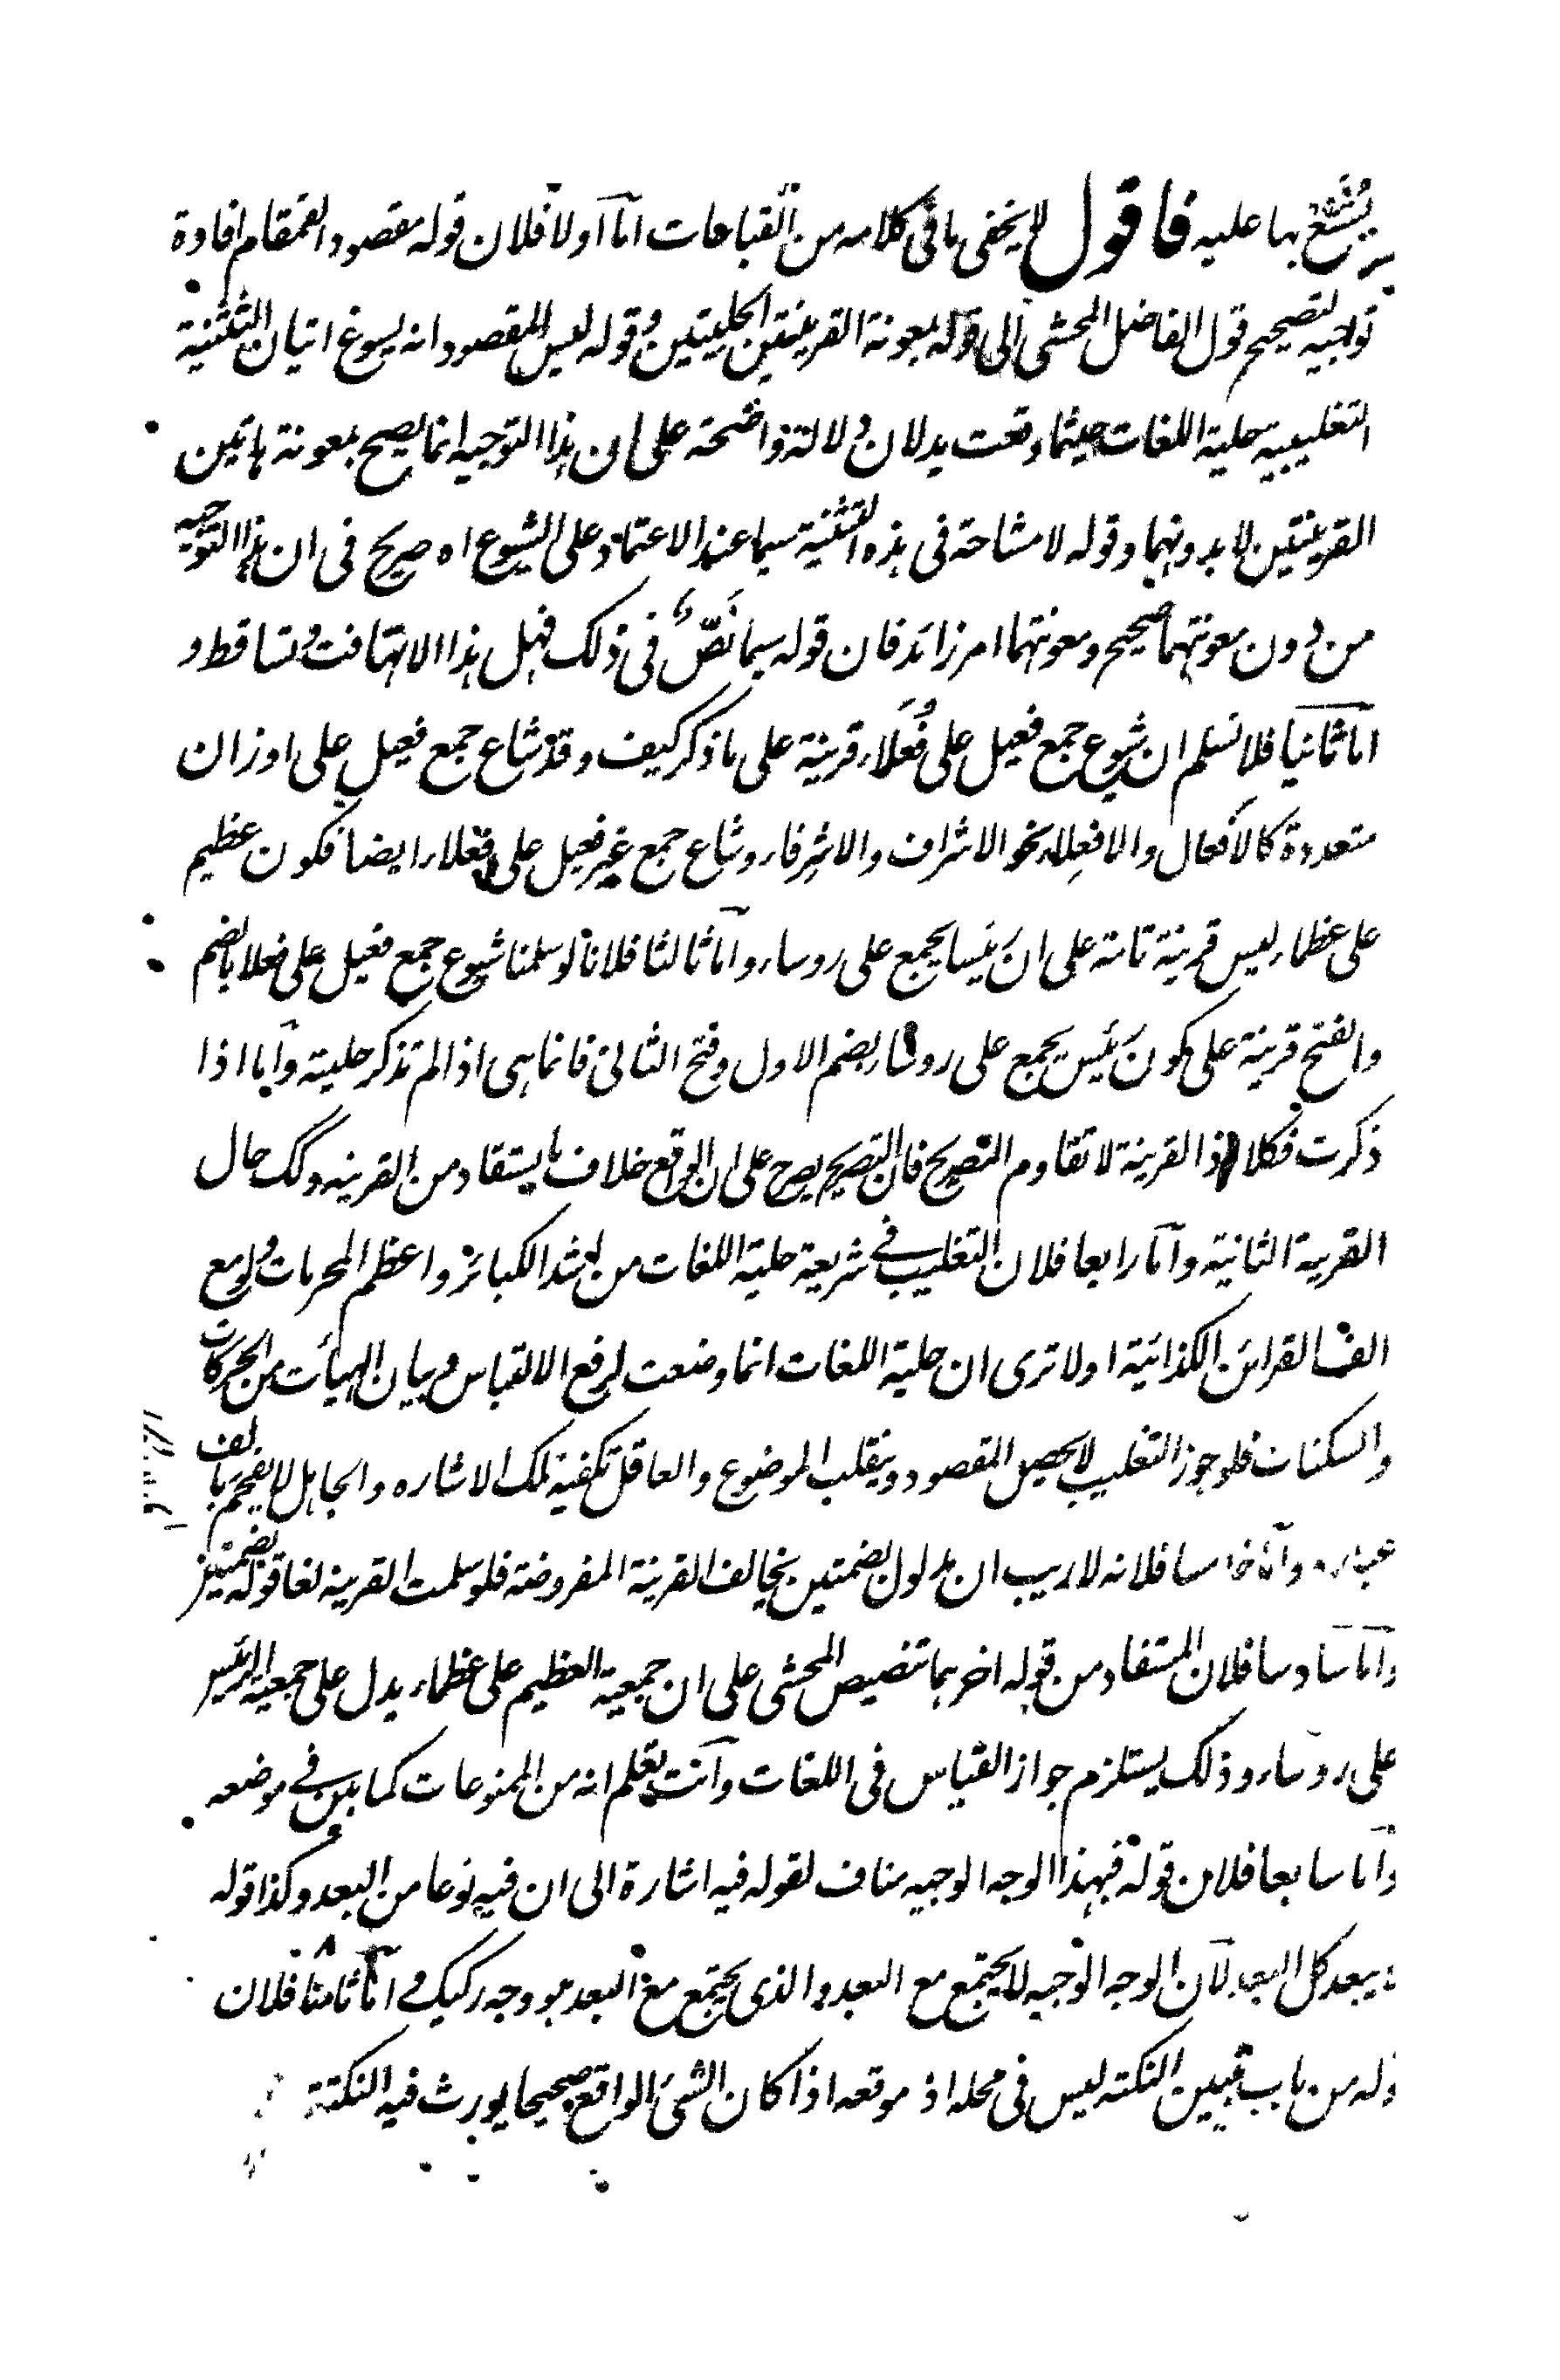 يشنع بها عليه فاقول لا يخفى ما فى كلامه من القباحات اما اولا فلان قوله مقصود القمقام افادة
توجيه لتصحيح قول الفاضل المحشى الى قوله بمعونة القرينتين الجليتين وقوله ليس المقصود انه يسوغ اتيان التثنية
التغليبية حلية اللغات حيثما وقعت يدلان دلالة واضحة على ان هذا التوجيه انما يصح بمعونة هاتين
القرينتين لا بدونهما وقوله لا مشاحة فى هذه التثنية سيما عند الاعتماد على الشيوع اه صريح فى ان هذا التوجيه
من دون معونتهما صحيح ومعونتهما امر زائد فان قوله سيما نَصٌّ فى ذلك فهل هذا الا تهافت وتساقط و
اما ثانيا فلا نسلم ان شيوع جمع فعيل على فُعَلَاء قرينة على ما ذكر كيف وقد شاع جمع فعيل على اوزان
متعددة كالأفعال والافعِلاء نحو الاشراف والاشرفاء وشاع جمع غير فعيل على فعلاء ايضا فكون عظيم
على عظماء ليس قرينة تامة على ان رئيسا يجمع على روساء واما ثالثا فلانا لو سلمنا شيوع جمع فعيل على فعلا بالضم
والفتح قرينة على كون رئيس يجمع على روساء بضم الاول وفتح الثانى فانما هى اذا لم تذكر حلية واما اذا
ذكرت فكلا اذ القرينة لا تقاوم التصريح فان التصريح يصرح على ان الواقع خلاف ما يستفاد من القرينه وكك حال
القرينة الثانية واما رابعا فلان التغليب فى شريعة حلية اللغات من اشد الكبائر واعظم المحرمات ولو مع
الف القرائن الكذائية اولا ترى ان حلية اللغات انما وضعت لرفع الالتباس وبيان الهيأت من الحركات
والسكنات فلو جوز التغليب لا يحصل المقصود وينقلب الموضوع والعاقل تكفيه تلك الاشاره والجاهل لا يفحم بالف
عباره واما خامسا فلانه لا ريب ان مدلول بضمتين يخالف القرينة المفروضة فلو سلمت القرينه لغا قوله بضمتين
واما سادسا فلان المستفاد من قوله اخرهما تنصيص المحشى على ان جمعية العظيم على عظماء يدل على جمعية الرئيس
على روساء وذلك يستلزم جواز القياس فى اللغات وانت تعلم انه من الممنوعات كما بين فى موضعه
واما سابعا فلان قوله فهذا الوجه الوجيه مناف لقوله فيه اشارة الى ان فيه نوعا من البعد وكذا قوله
يبعد كل البعد لان الوجه الوجيه لا يجتمع مع البعد والذى يجتمع مع البعد هو وجه ركيك واما ثامنا فلان
قوله من باب تبيين النكته ليس فى محله اذ موقعه اذا كان الشئ الواقع صحيحا يورث فيه النكتة